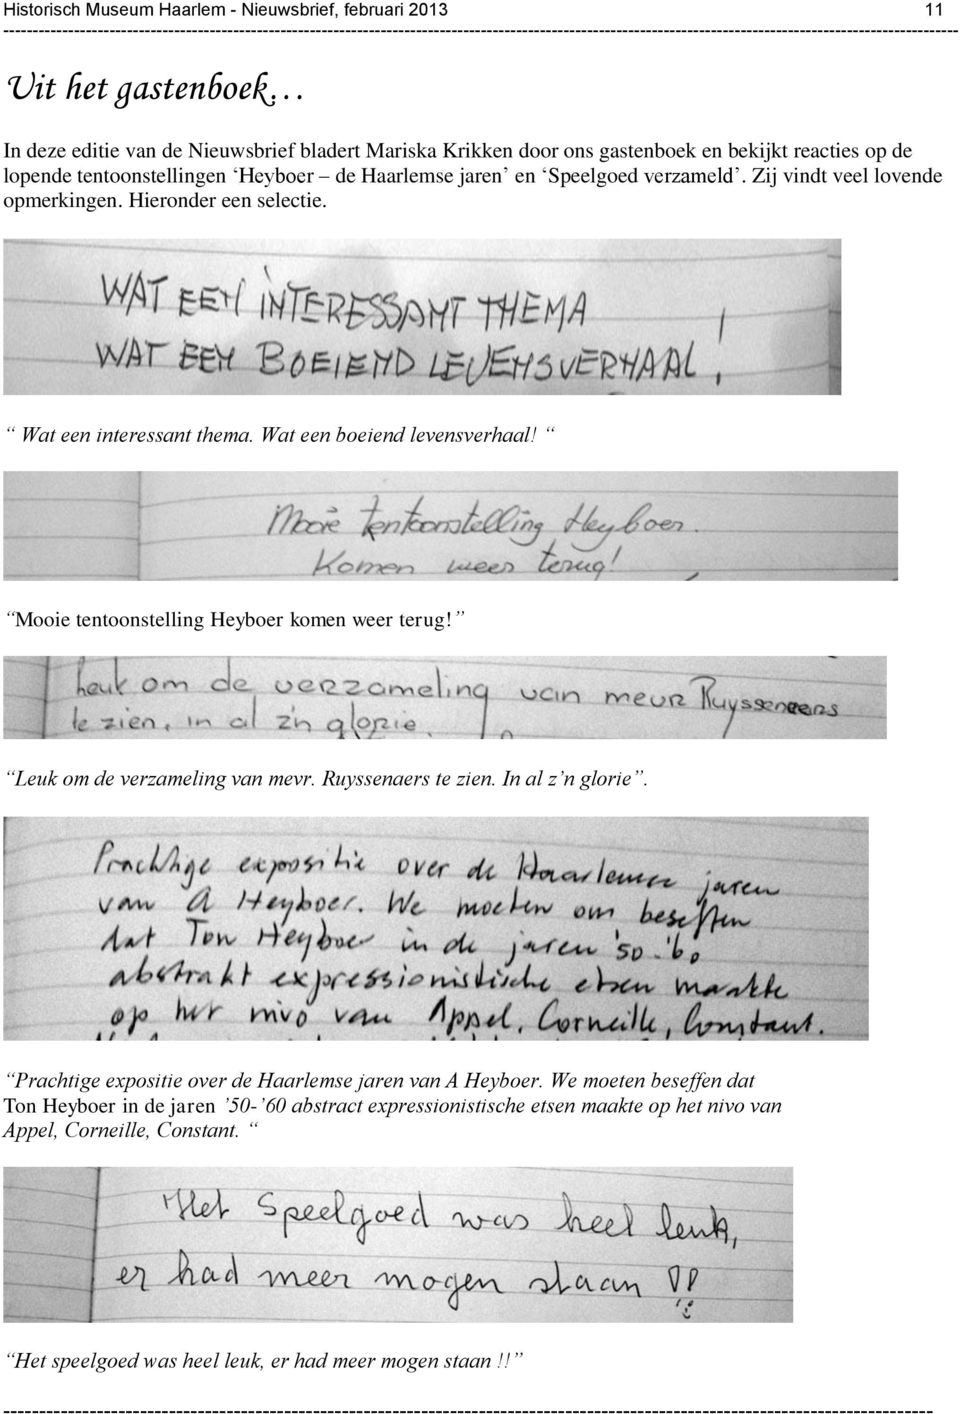 Historisch Museum Haarlem - Nieuwsbrief, februari 2013 11
Uit het gastenboek…
In deze editie van de Nieuwsbrief bladert Mariska Krikken door ons gastenboek en bekijkt reacties op de
lopende tentoonstellingen ‘Heyboer – de Haarlemse jaren’ en ‘Speelgoed verzameld’. Zij vindt veel lovende
opmerkingen. Hieronder een selectie.
WAT EEN INTERESSANT THEMA
WAT EEN BOEIEND LEVENSVERHAAL!
“ Wat een interessant thema. Wat een boeiend levensverhaal! “
Mooie tentoonstelling Heyboer.
Komen weer terug!
“Mooie tentoonstelling Heyboer komen weer terug! ”
Leuk om de verzameling van mevr Ruysseneers
te zien, in al z'n glorie.
“Leuk om de verzameling van mevr. Ruyssenaers te zien. In al z’n glorie”.
Prachtige expositie over de Haarlemse jaren
van A Heyboer. We moeten ons beseffen
dat Ton Heyboer in de jaren '50-'60
abstrakt expressionistische etsen maakte
op het nivo van Appel, Corneille, Constant.
“Prachtige expositie over de Haarlemse jaren van A Heyboer. We moeten beseffen dat
Ton Heyboer in de jaren ’50-’60 abstract expressionistische etsen maakte op het nivo van
Appel, Corneille, Constant. “
Het Speelgoed was heel leuk,
er had meer mogen staan !!
“Het speelgoed was heel leuk, er had meer mogen staan !!”